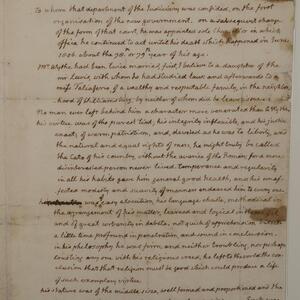 to whom that department of the Judiciary was confided, on the first
organisation of the new government. on a subsequent change
of the form of that court, he was appointed sole Chancellor, in which
office he continued to act until his death, which happened in June
1806 about the 78th or 79th year of his age.
Mr Wythe had been twice married, first I believe to a daughter of
mr Lewis, with whom he had studied law; and afterwards to a
miss Taliaferro of a wealthy and respectable family, in the neighbor-
hood of Williamsburg, by neither of whom did he leave issue.
No man ever left behind him a character more venerated than G. Wythe
his virtue was of the purest kind, his integrity inflexible, and his justice
exact; of warm patriotism, and, devoted as he was to liberty, and
the natural and equal rights of men, he might truly be called
the Cato of his country, without the avarice of the Roman; for a more
disinterested person never lived. temperance and regularity
in all his habits gave him general good health, and his unaf-
fected modesty and suavity of manners endeared him to every one.
he was of easy elocution, his language chaste, methodical in
the arrangement of his matter, learned and logical in the use of
it, and of great urbanity in debate, not quick of apprehension, but with
a little time profound in penetration, and sound in conclusion.
in his philosophy he was firm, and neither troubling, nor perhaps
trusting any one with his religious creed, he left to the world the con-
clusion that that religion must be good which could produce a life
of such exemplary virtue.
his stature was of the middle size, well formed and proportioned and the